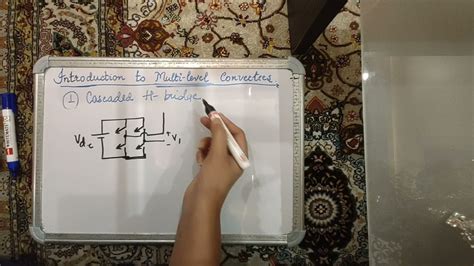 Introduction to Multi-level Converters
① Cascaded H-bridge
Vdc
+
V1
-